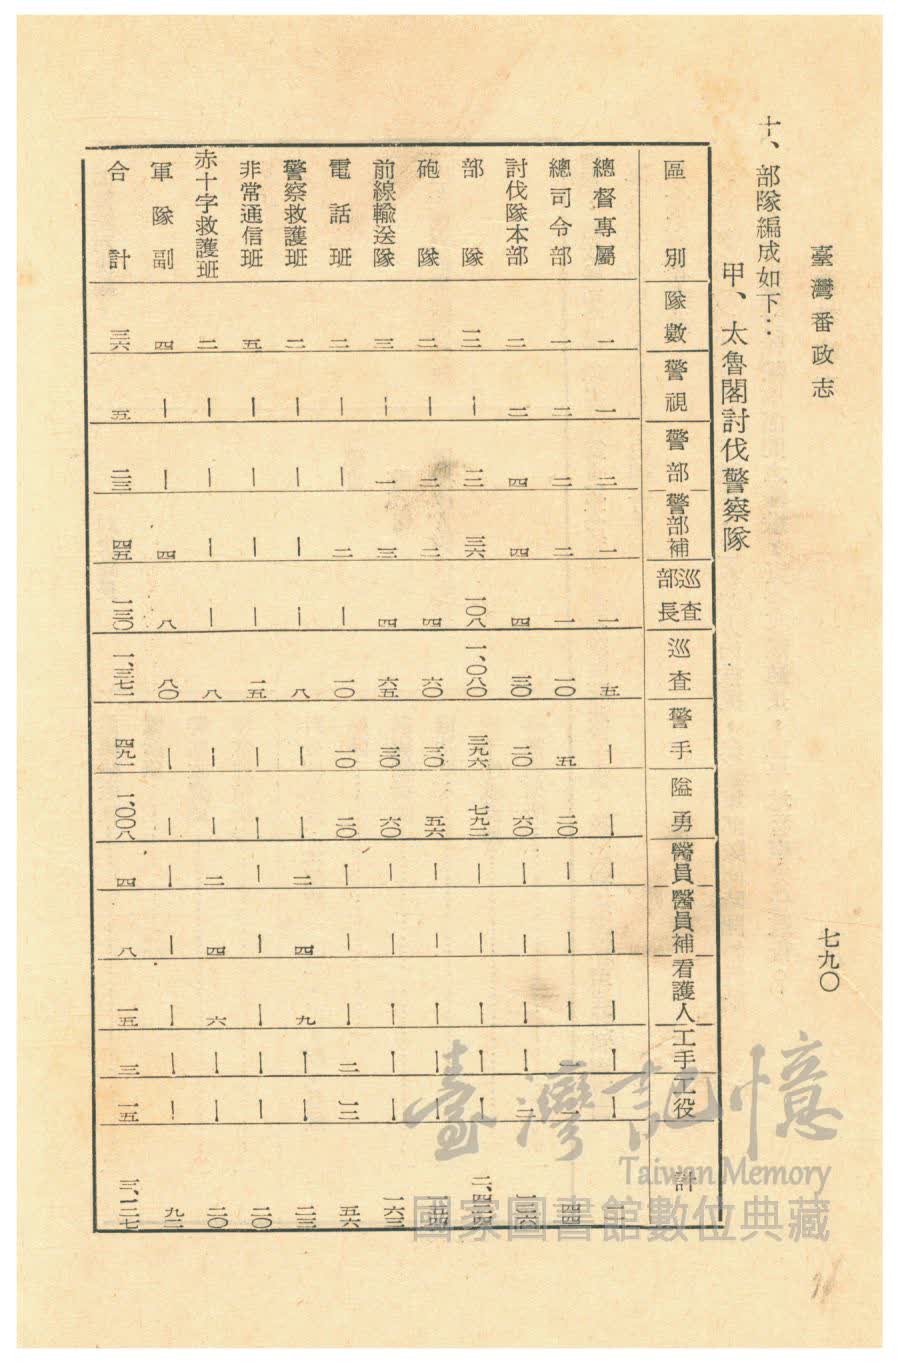 臺灣番政志
七九〇
十、部隊編成如下：
甲、太魯閣討伐警察隊
區別 隊數 警視 警部 警部補 巡查部長 巡查 警手 隘勇 醫員 醫員補 看護人 工手 工役 計
總督專屬 一 一 二 一 一 五 — — — — — — —
總司令部 一 二 二 二 一 一〇 五 二〇 — — — 一 一 四四
討伐隊本部 二 二 四 四 四 三〇 二〇 六〇 — — — — 二 一二六
部隊 一二 — 一二 三六 一〇八 一、〇八〇 三九六 七九二 — — — — — 二、四二四
砲隊 二 — 二 二 四 六〇 三〇 五六 — — — — — 一五四
前線輸送隊 三 — 一 三 四 六五 三〇 六〇 — — — — — 一六三
電話班 二 — — 二 — 一〇 一〇 二〇 — — — 二 一二 五六
警察救護班 二 — — — — 八 — — 二 四 九 — — 二三
非常通信班 五 — — — — 一五 — — — — — — — 二〇
赤十字救護班 二 — — — — 八 — — 二 四 六 — — 二〇
軍隊副 四 — — 四 八 八〇 — — — — — — — 九二
合計 三六 五 二三 四五 一三〇 一、三七一 四九一 一、〇〇八 四 八 一五 三 一五 三、一二七
臺灣記憶
Taiwan Memory
國家圖書館數位典藏